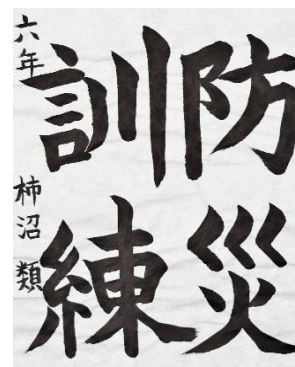 防災
訓練
六年 柿沼 類